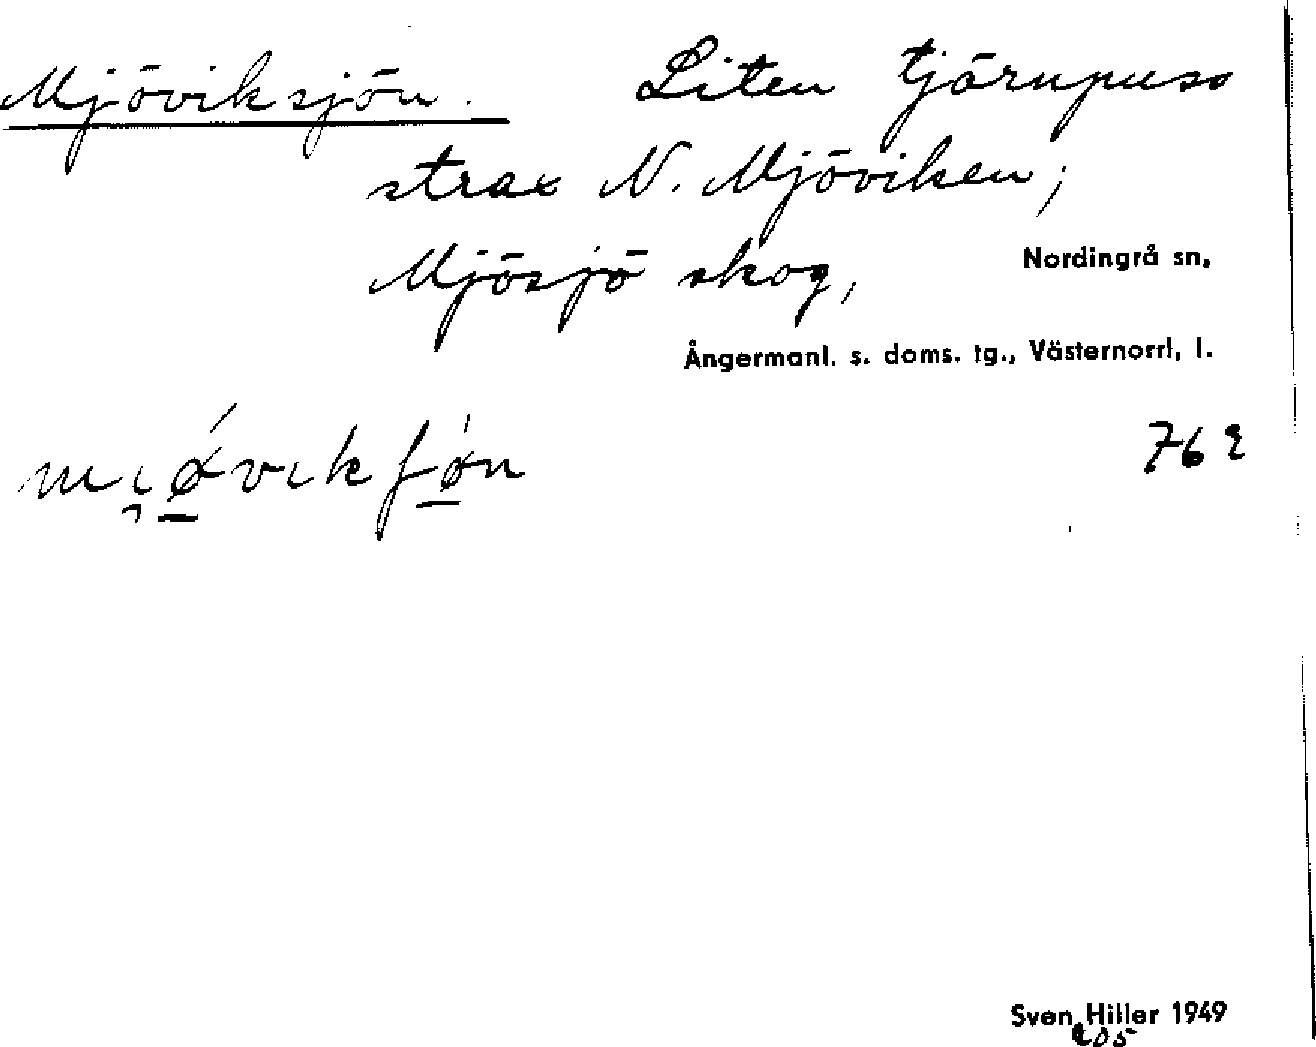 Mjöviksjön. Liten tjärnpuss
strax N. Mjöviken;
Mjösjö skog, Nordingrå sn,
Ångermanl. s. doms. tg., Västernorrl. l.
762
Sven Hiller 1949
205